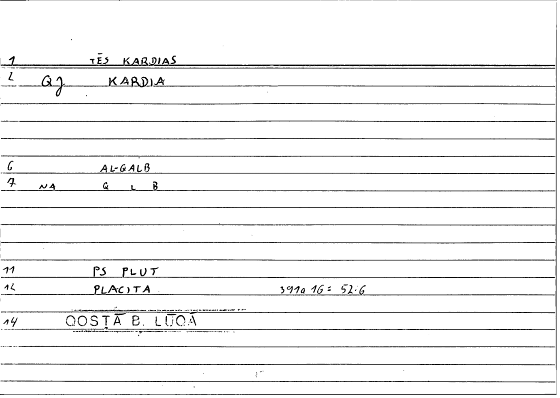 1 TĒS KARDIAS
2 QJ KARDIA
6 AL-GALB
7 NA Q L B
11 PS PLUT
12 PLACITA 391a 16 = 52.6
14 QOSṬĀ B. LŪQĀ